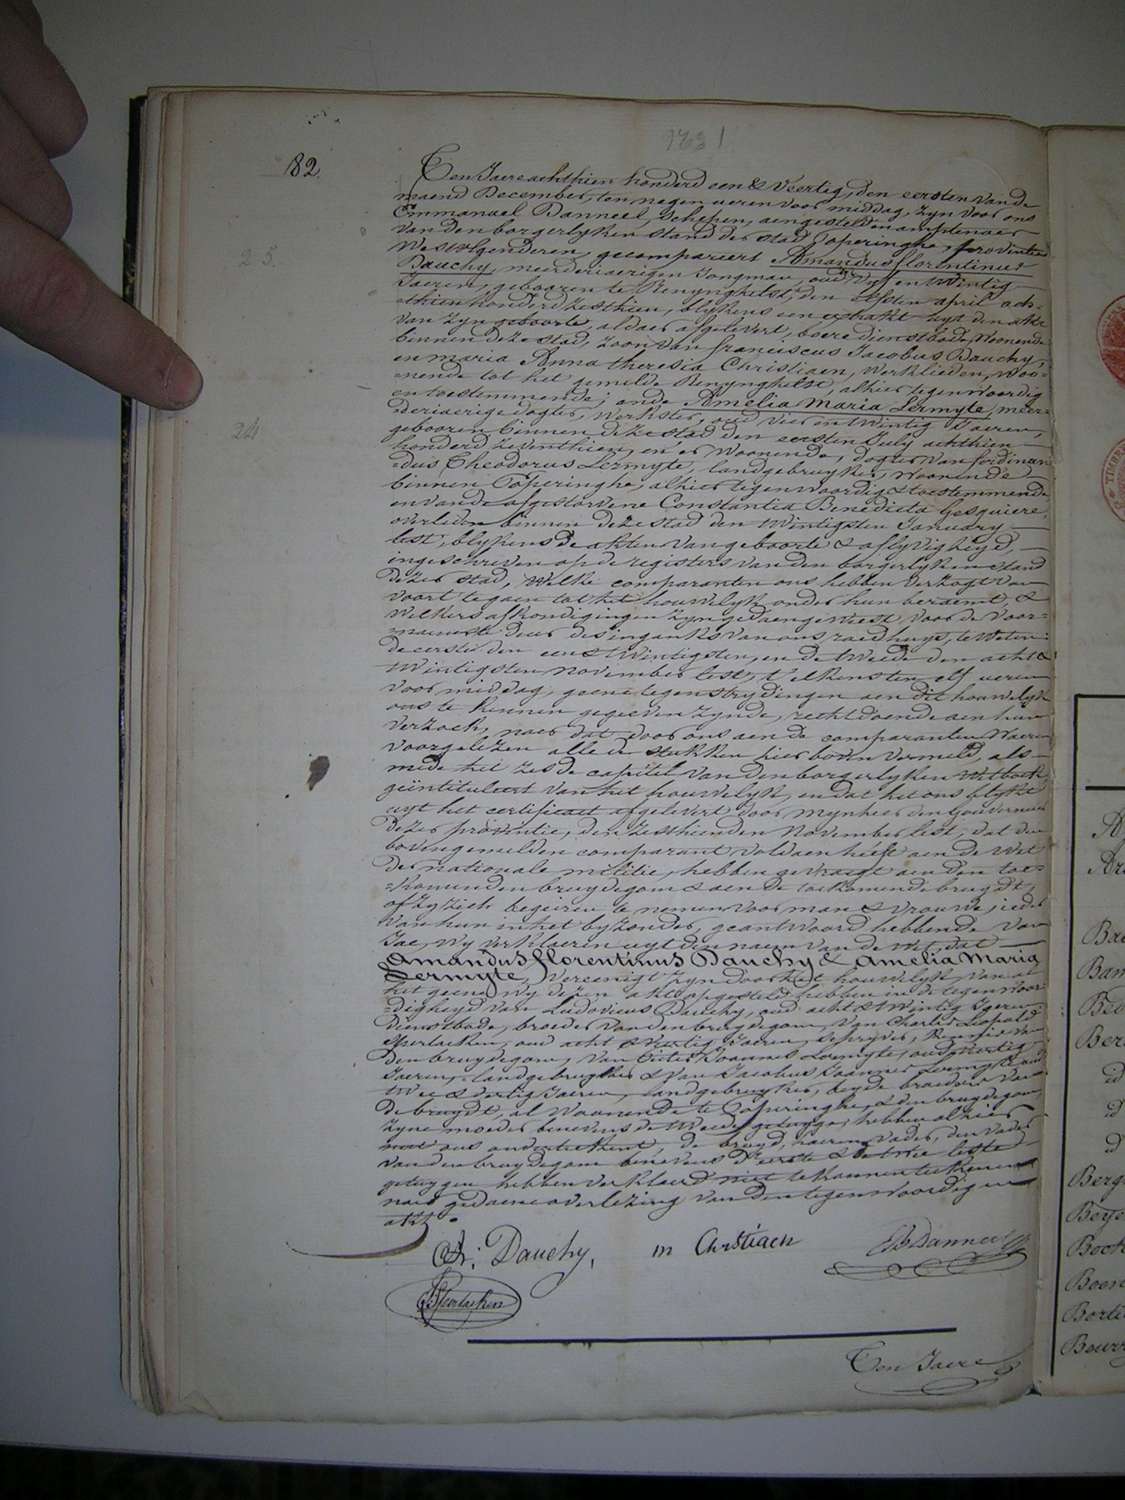 82.
25.
24
Ten Jaere achthien honderd een & Veertig, den eersten van de
maend December, ten negen ueren voor middag, zyn voor ons
Emmanuel Danneel, Schepen, aengestelden amptenaer
van den borgerlyken stand der stad Poperinghe, provintie
Westvlaenderen, gecompareert Amandus florentinus
Dauchy, meerderjaerigen Jongman, oud vyf en twintig
Jaeren, gebooren te Renynghelst, den elfsten april acht-
thien honderd zesthien, blykens een extrakt uyt den akt
van zyn geboorte, aldaer afgelevert, boere dienstbode, Woonende
binnen deze stad, zoon van franciscus Jacobus Dauchy,
en maria Anna theresia Christiaen, Werklieden, Woo-
nende tot het gemelde Renynghelst, alhier tegenwoordig
en toestemmende; ende Amelia Maria Lermyte, meer-
derjaerige dogter, Werkster, oud vier en twintig Jaeren,
gebooren binnen deze stad den eersten July achthien
honderd zeventhien, en er Woonende, dogter van ferdinan-
dus Theodorus Lermyte, landgebruyker, Woonende
binnen Poperinghe, alhier tegenwoordig & toestemmende
en van de afgestorvene Constantia Benedicta Gesquiere,
overleden binnen deze stad den twintigsten January
lest, blykens de akten van geboorte & aflyvigheyd,
ingeschreven op de registers van den borgerlyken stand
dezer stad, Welke comparanten ons hebben verzogt van
voort te gaen tot het houwelyk onder hun beraemt, &
Welkers afkondigingen zyn gedaen geweest voor de voor-
naemste deur des ingangs van ons raedhuys, te weten:
de eerste den een & twintigsten, en de tweede den acht &
twintigsten November lest, t'elkensten elf ueren
voor middag, geene tegenstrydingen aen dit houwelyk
ons te kennen gegeeven zynde, recht doende aen hun
verzoek, naer dat door ons aen de comparanten Waeren
voorgelezen alle de stukken hier boven vermeld, als-
mede het zesde capittel van den borgerlyken Wetboek,
geïntituleert van het houwelyk, en dat het ons blykt
uyt het certificaet afgelevert door mynheer den Gouverneur
dezer provintie, den zesthienden November lest, dat den
bovengemelden comparant voldaen heeft aen de Wet
der nationale militie, hebben gevraegt aen den toe-
komenden bruydegom & aen de toekomende bruydt,
of zy zich begeiren te nemen voor man & vrouwe; ieder
van hun in het byzonder, geantwoord hebbende van
Jae, wy verklaeren uyt den naem van de Wet, dat
Amandus florentinus Dauchy & Amelia Maria
Lermyte, vereenigt zyn door het houwelyk, van al
het geene wy dezen akt opgestelt hebben in de tegenwoor-
digheyd van Ludovicus Dauchy, oud acht & twintig Jaeren,
dienstbode, broeder van den bruydegom, van Charles Leopold
Sperlacken, oud acht & veertig Jaeren, Schryver, kennis van
den bruydegom, van Pieter Joannes Lermyte, oud veertig
Jaeren, landgebruyker & van Jacobus Joannes Lermyte, oud
twee & dertig Jaeren, landgebruyker, beyde broeders van
de bruydt, al Woonende te Poperinghe, & den bruydegom,
zyne moeder benevens de tweede getuyge, hebben alhier
met ons onderteekent, de bruyd, haeren vader, den vader
van den bruydegom benevens d'eerste & de twee leste
getuygen hebben verklaerd niet te kunnen teekenen
naer gedaene overlezing van den tegenwoordigen
akt.
A: Dauchy, m Christiaen EDanneel
Sperlacken
Ten Jaere